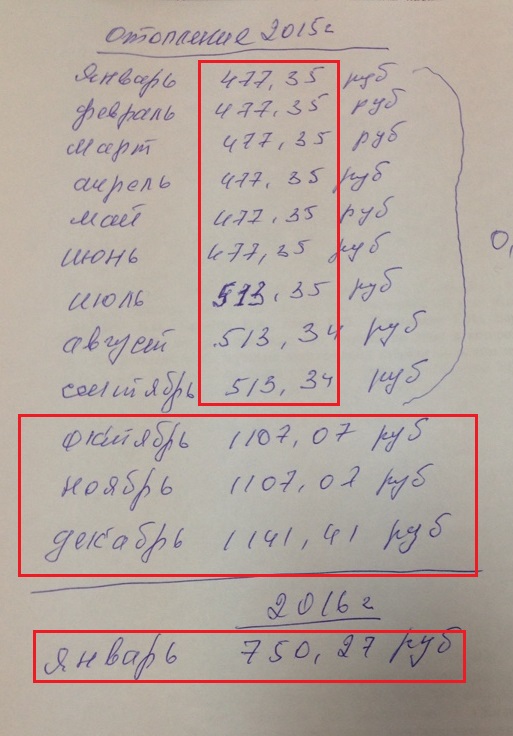 отопление 2015г
январь 477,35 руб
февраль 477,35 руб
март 477,35 руб
апрель 477,35 руб
май 477,35 руб
июнь 477,35 руб
июль 513,35 руб
август 513,34 руб
сентябрь 513,34 руб
октябрь 1107,07 руб
ноябрь 1107,07 руб
декабрь 1141,41 руб
2016г
январь 750,27 руб